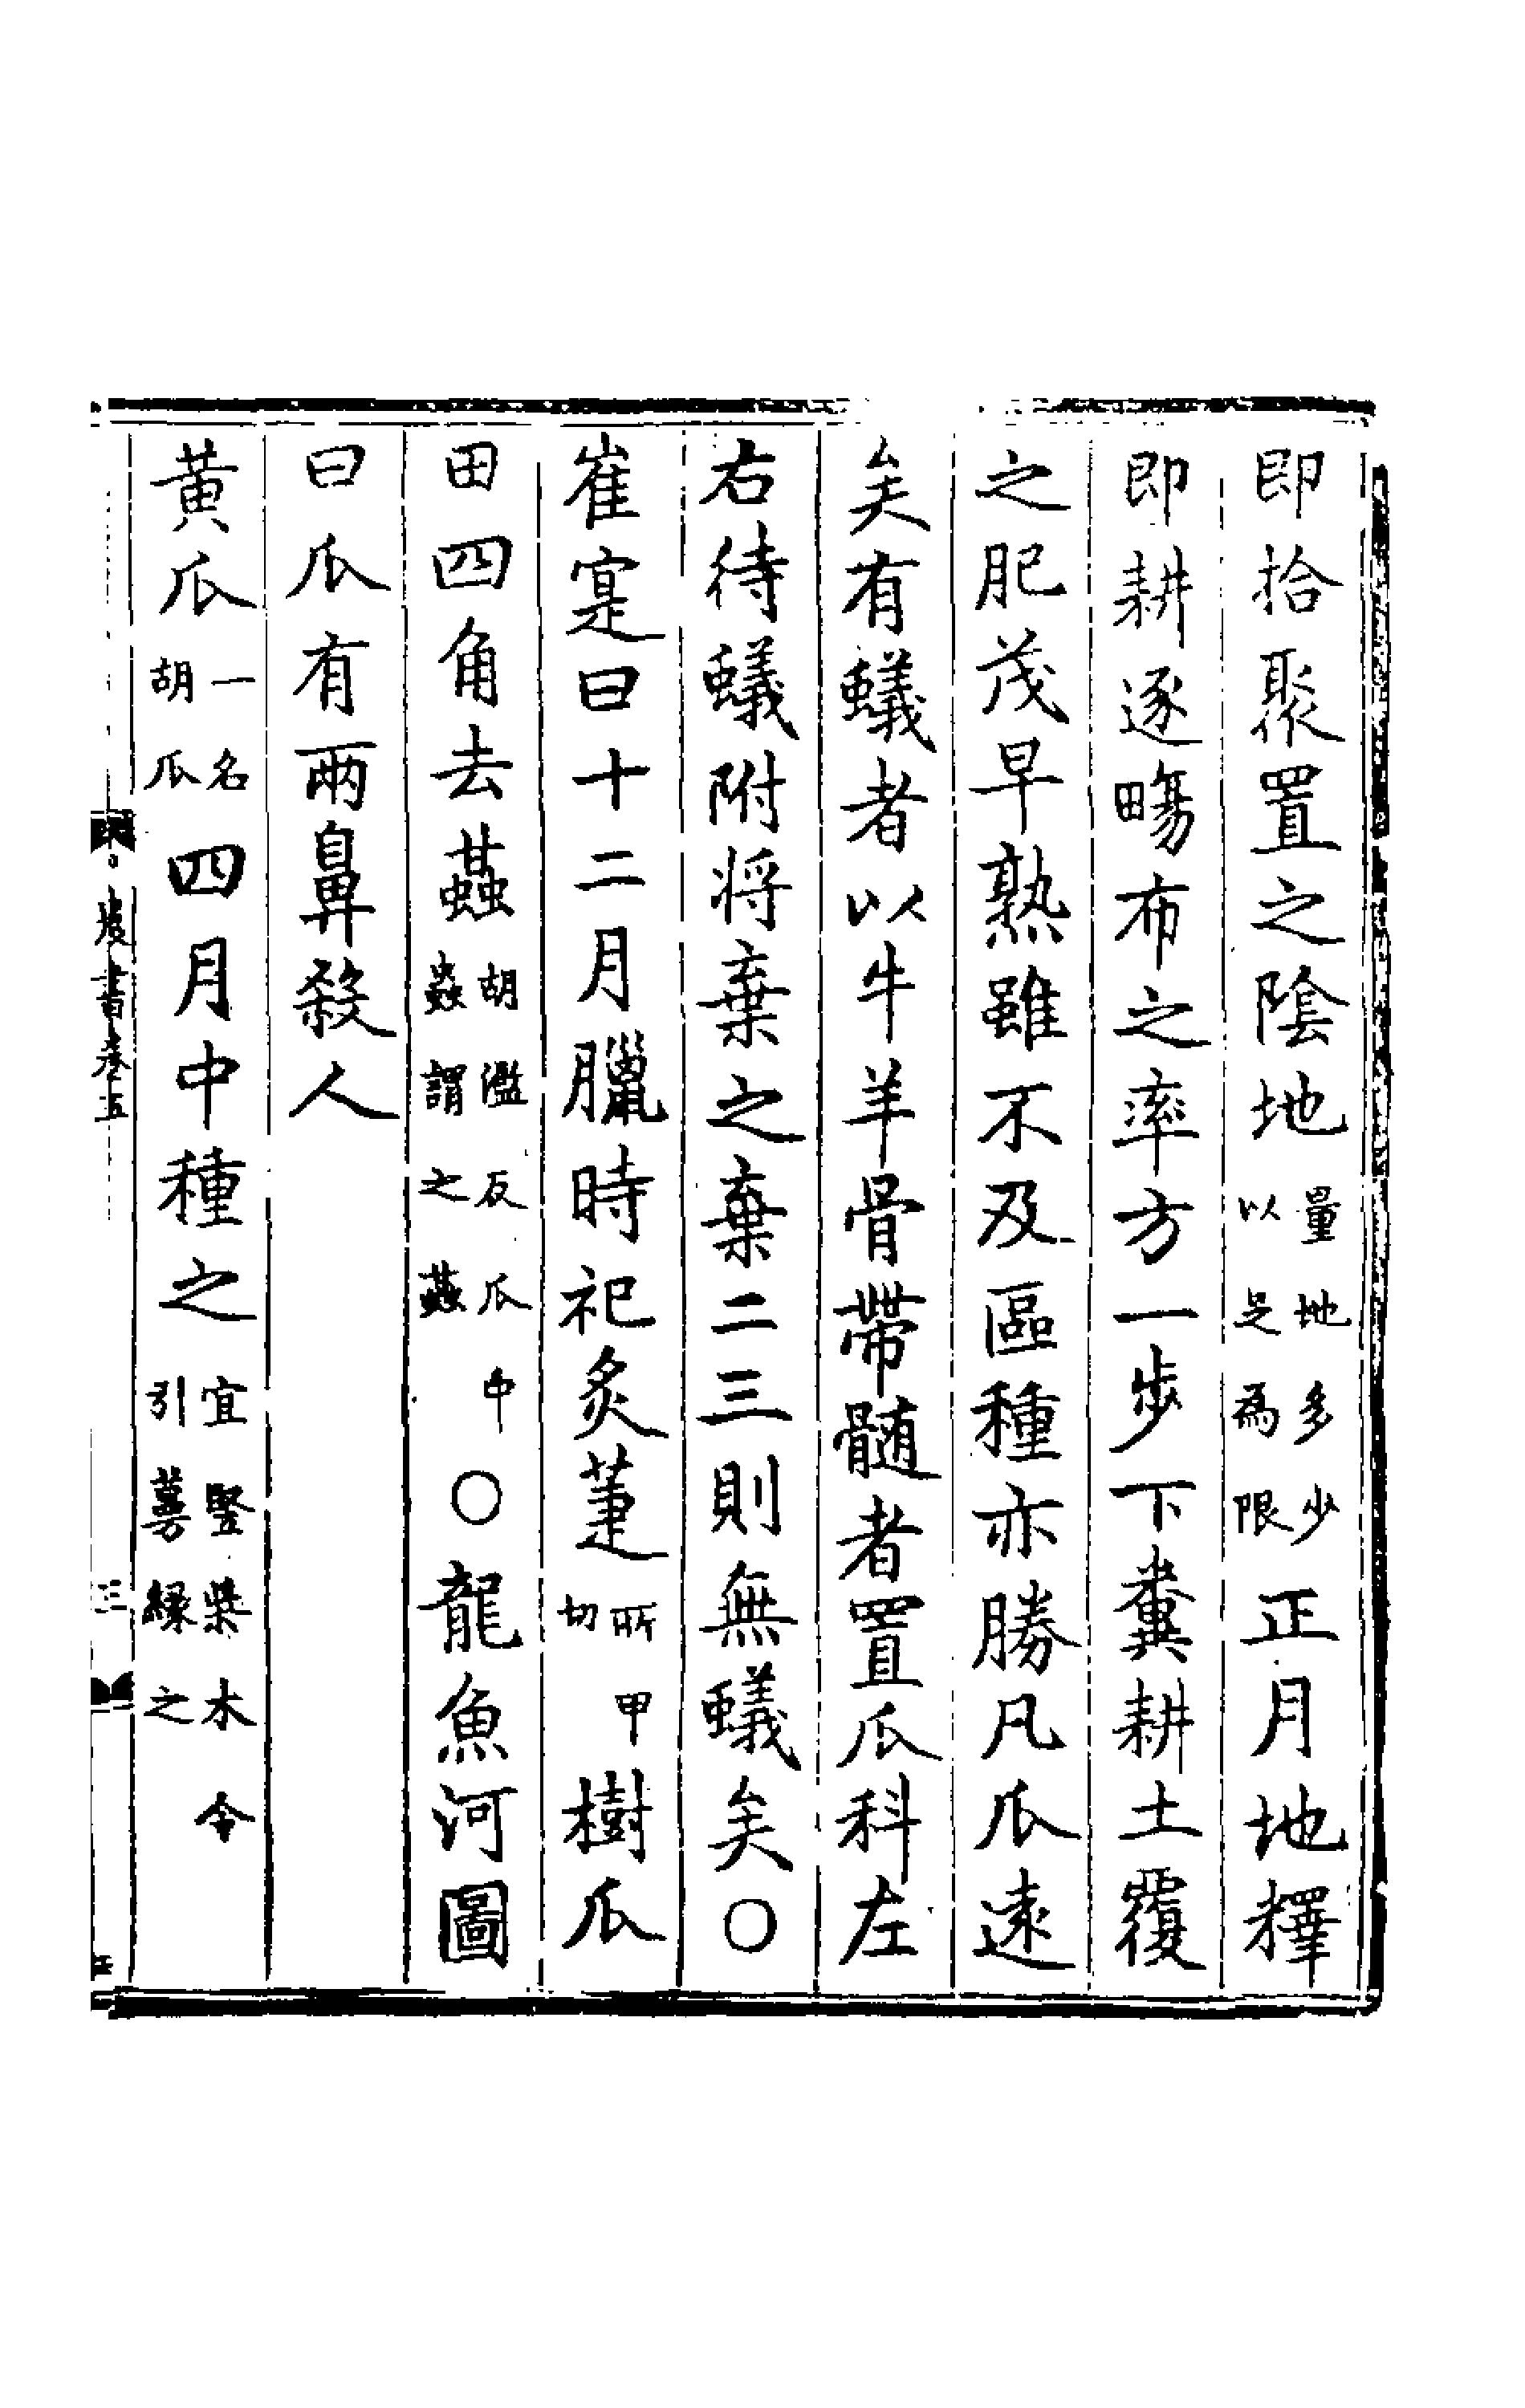 即拾聚置之陰地量地多少以足為限正月地釋
即耕逐畼布之率方一步下糞耕土覆
之肥茂早熟雖不及區種亦勝凡瓜遠
矣有蟻者以牛羊骨帶髄者置瓜科左
右待蟻附将棄之棄二三則無蟻矣〇
崔寔曰十二月臘時祀炙萐所甲切樹瓜
田四角去䕭胡濫反瓜中蟲謂之䕭〇龍魚河圖
曰瓜有兩鼻殺人
黄瓜一名胡瓜四月中種之宜竪柴木令引蔓縁之
農書卷五
三